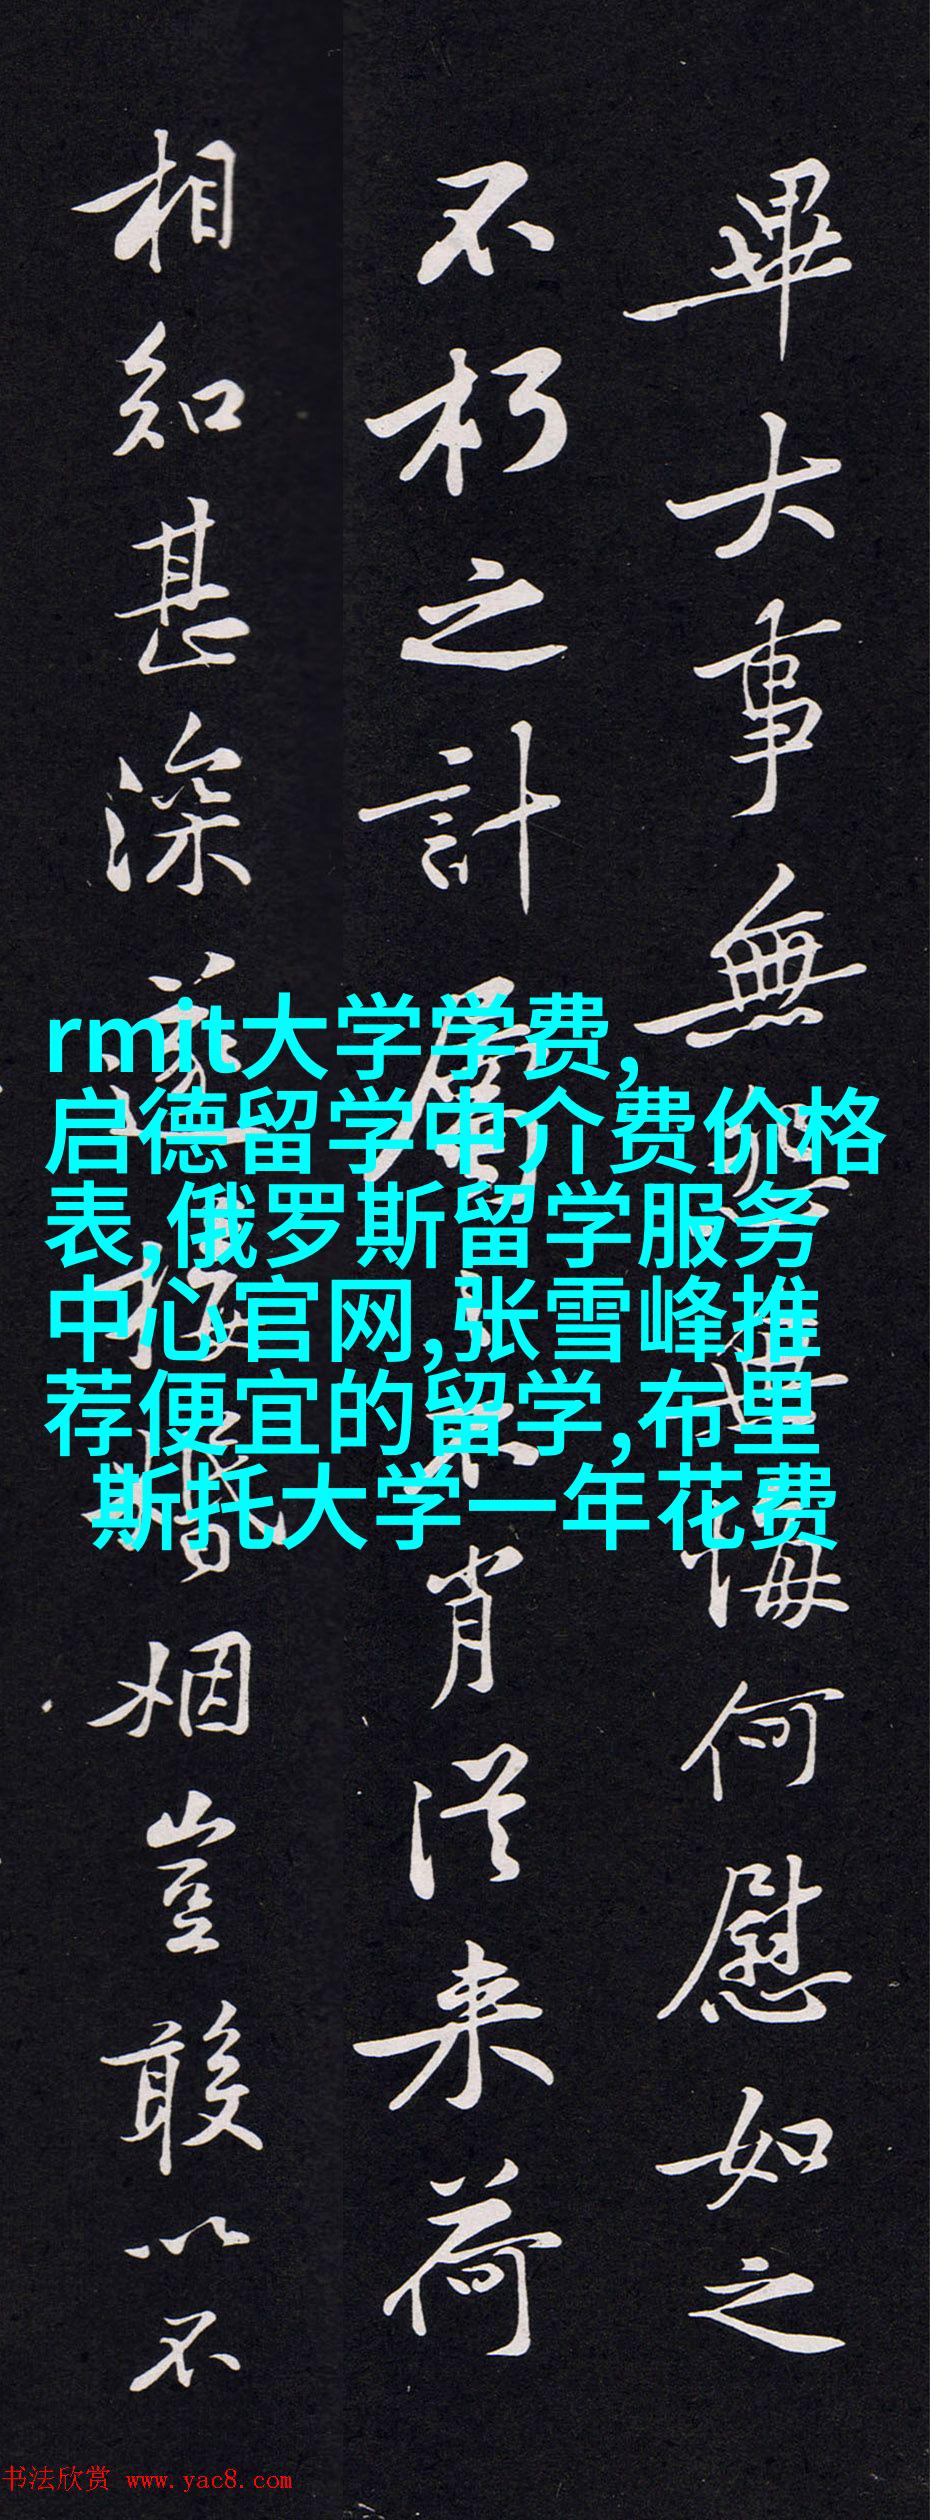 畢大事無
悔何慰如之
不朽之計屬
不肖從来荷
相知甚深
婚姻豈敢以不
rmit大学学费,
启德留学中介费价格
表,俄罗斯留学服务
中心官网,张雪峰推
荐便宜的留学,布里
斯托大学一年花费
书法欣赏 www.yac8.com